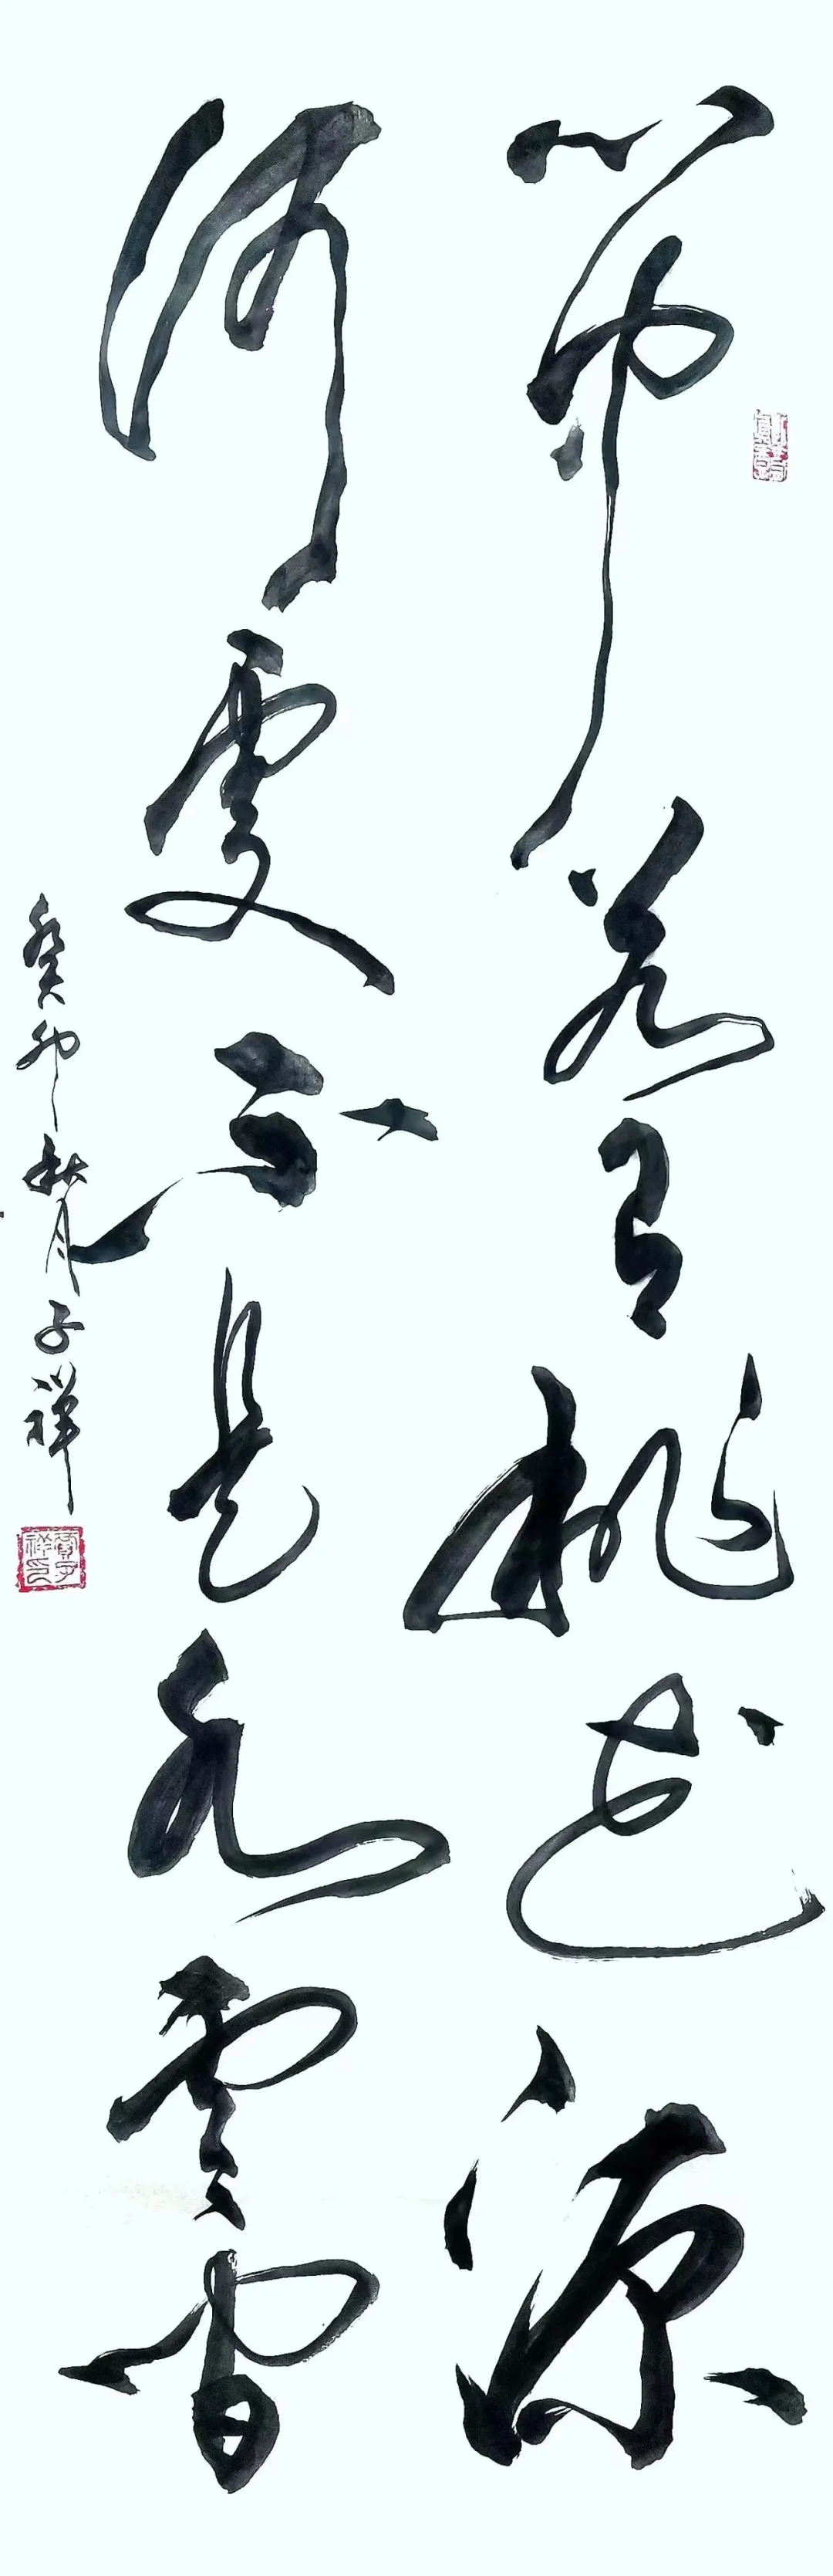 心中若有桃花源
何處不是水雲間
癸卯秋月子祥